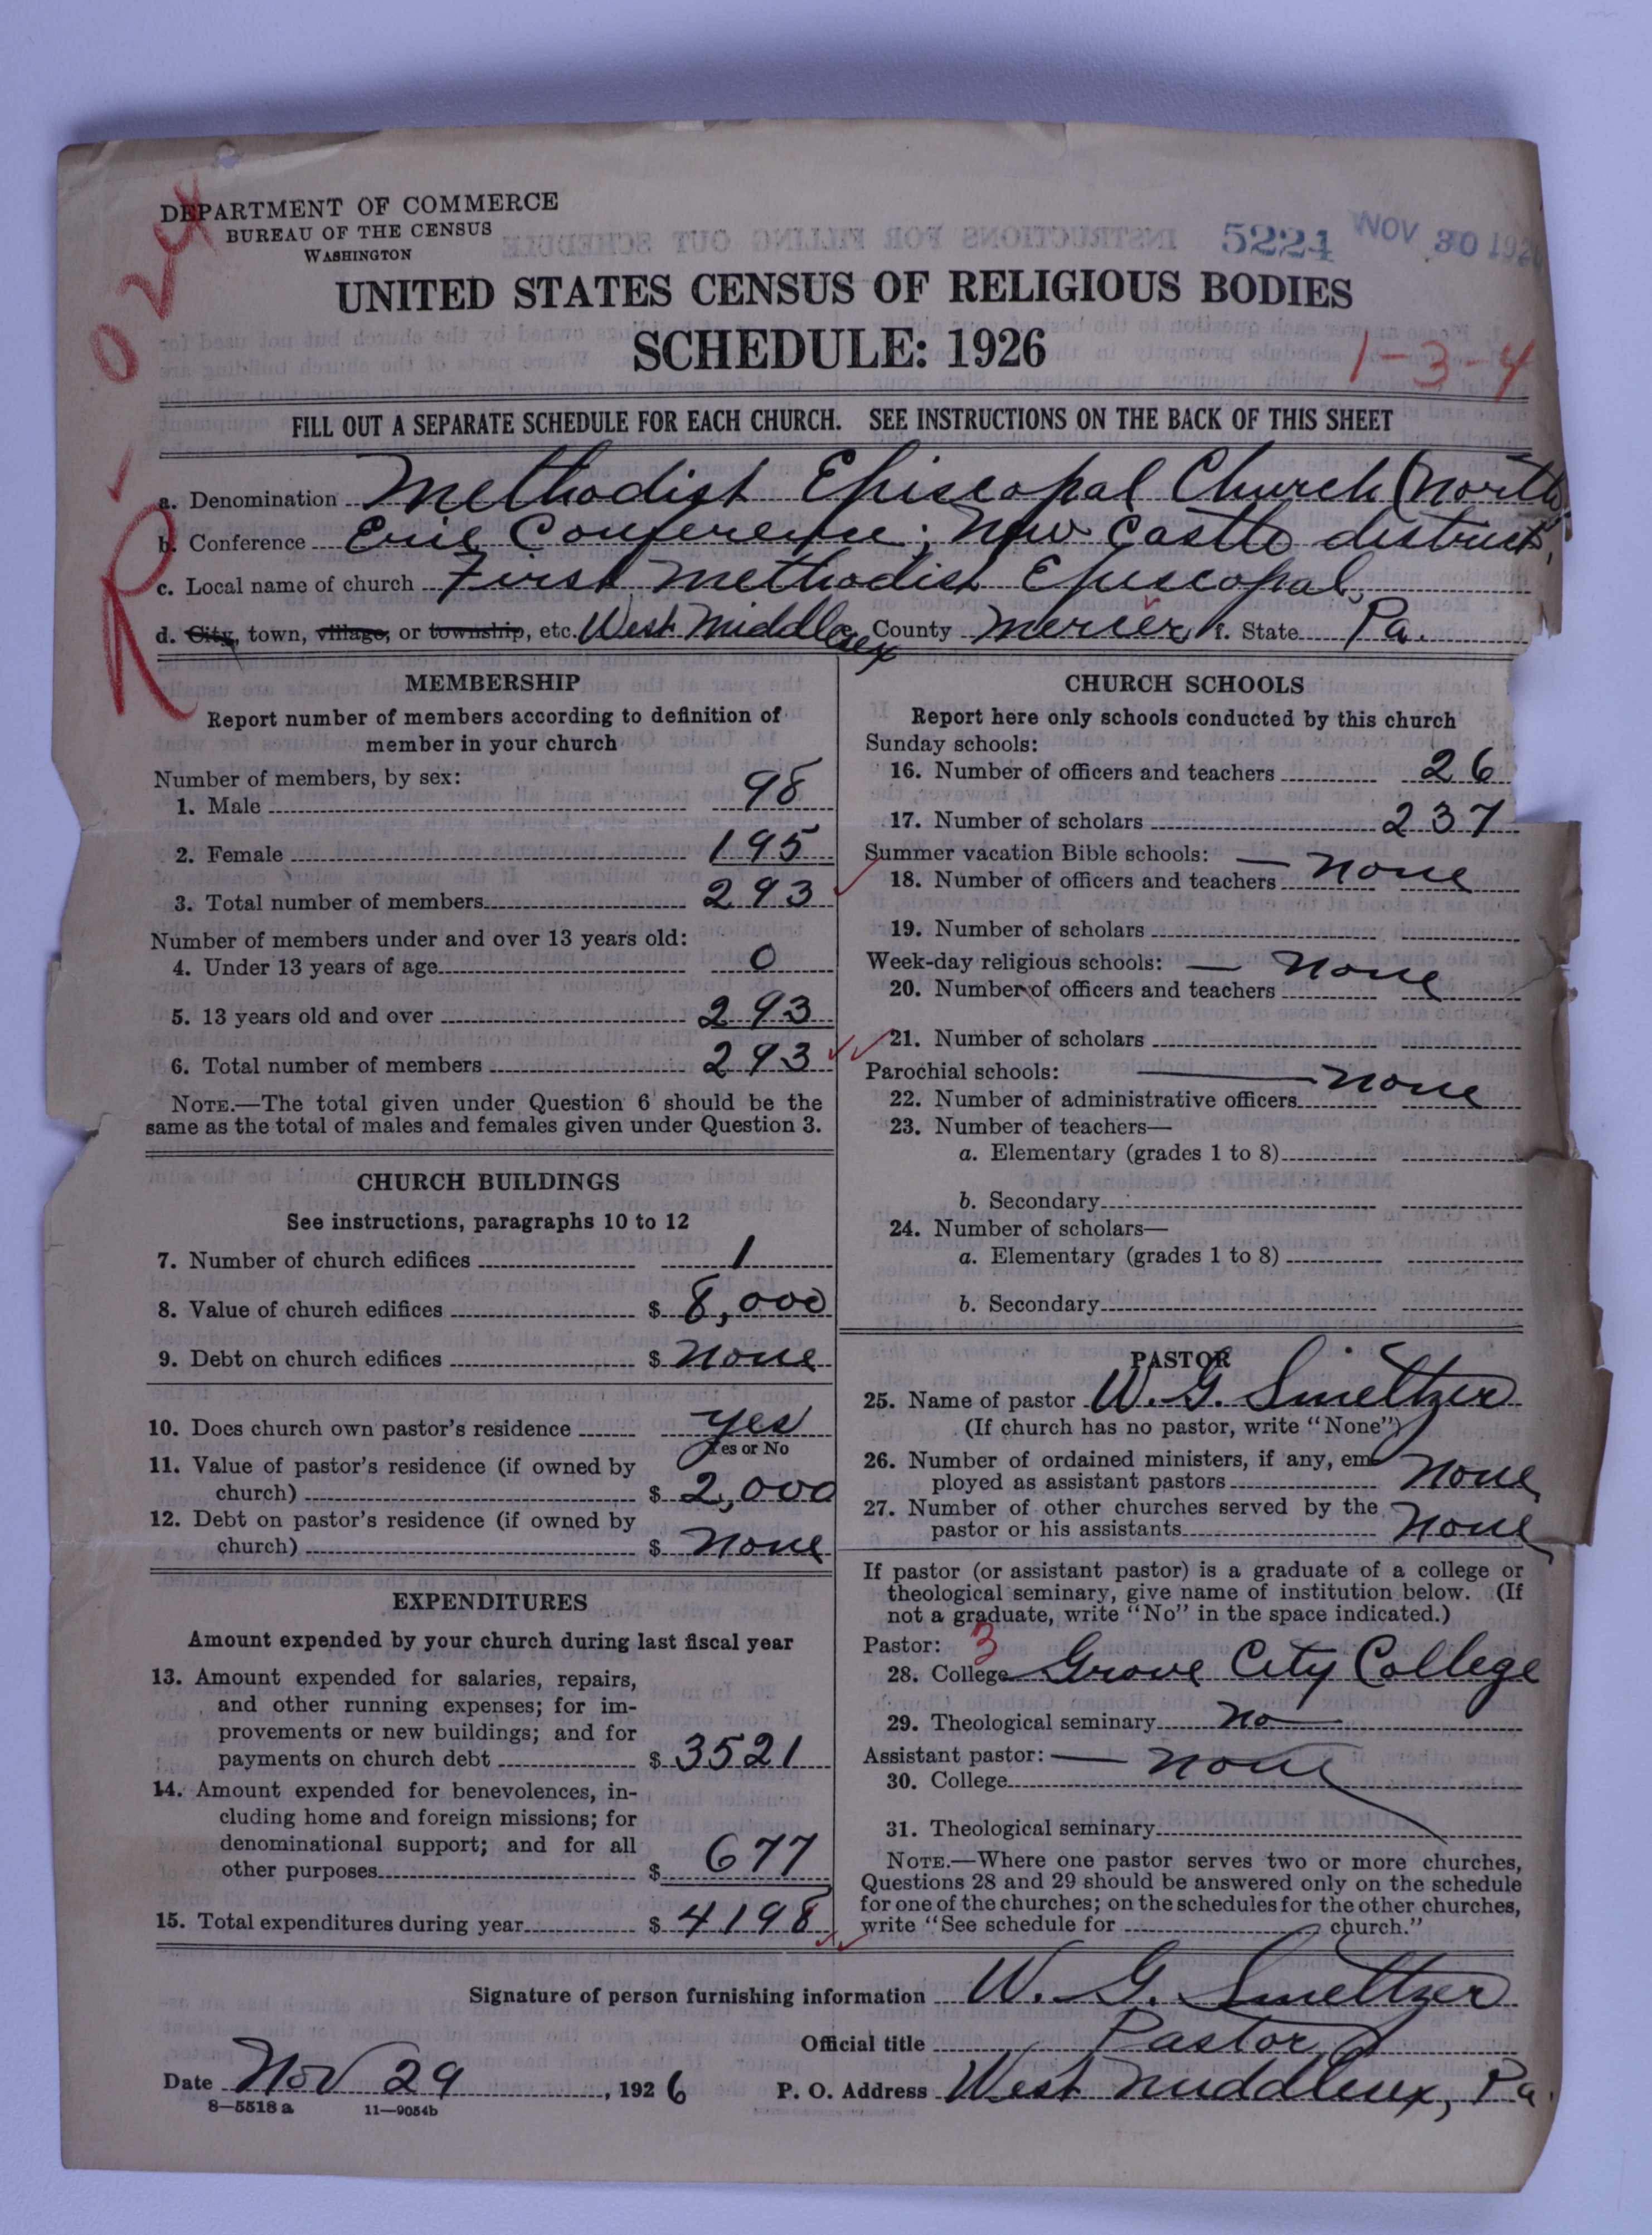 DEPARTMENT OF COMMERCE
BUREAU OF THE CENSUS
WASHINGTON
5224 NOV 30 192
UNITED STATES CENSUS OF RELIGIOUS BODIES
SCHEDULE: 1926
1-3-4
R - 024
FILL OUT A SEPARATE SCHEDULE FOR EACH CHURCH. SEE INSTRUCTIONS ON THE BACK OF THIS SHEET
a. Denomination Methodist Episcopal Church (North)
b. Conference Erie Conference; New Castle district,
c. Local name of church First Methodist Episcopal,
d. City, town, village, or township, etc. West Middlesex County Mercer f. State Pa.
MEMBERSHIP
Report number of members according to definition of
member in your church
Number of members, by sex:
1. Male 98
2. Female 195
3. Total number of members 293
Number of members under and over 13 years old:
4. Under 13 years of age 0
5. 13 years old and over 293
6. Total number of members 293
NOTE.—The total given under Question 6 should be the
same as the total of males and females given under Question 3.
CHURCH BUILDINGS
See instructions, paragraphs 10 to 12
7. Number of church edifices 1
8. Value of church edifices $ 8,000
9. Debt on church edifices $ None
10. Does church own pastor's residence yes
Yes or No
11. Value of pastor's residence (if owned by
church) $ 2,000
12. Debt on pastor's residence (if owned by
church) $ None
EXPENDITURES
Amount expended by your church during last fiscal year
13. Amount expended for salaries, repairs,
and other running expenses; for im-
provements or new buildings; and for
payments on church debt $ 3521
14. Amount expended for benevolences, in-
cluding home and foreign missions; for
denominational support; and for all
other purposes $ 677
15. Total expenditures during year $ 4198
CHURCH SCHOOLS
Report here only schools conducted by this church
Sunday schools:
16. Number of officers and teachers 26
17. Number of scholars 237
Summer vacation Bible schools: — None
18. Number of officers and teachers
19. Number of scholars
Week-day religious schools: — None
20. Number of officers and teachers
21. Number of scholars
Parochial schools: — None
22. Number of administrative officers
23. Number of teachers—
a. Elementary (grades 1 to 8)
b. Secondary
24. Number of scholars—
a. Elementary (grades 1 to 8)
b. Secondary
PASTOR
25. Name of pastor W. G. Smeltzer
(If church has no pastor, write "None")
26. Number of ordained ministers, if any, em-
ployed as assistant pastors None
27. Number of other churches served by the
pastor or his assistants None
If pastor (or assistant pastor) is a graduate of a college or
theological seminary, give name of institution below. (If
not a graduate, write "No" in the space indicated.)
Pastor: 3
28. College Grove City College
29. Theological seminary No
Assistant pastor: — None
30. College
31. Theological seminary
NOTE.—Where one pastor serves two or more churches,
Questions 28 and 29 should be answered only on the schedule
for one of the churches; on the schedules for the other churches,
write "See schedule for church."
Signature of person furnishing information W. G. Smeltzer
Official title Pastor
Date Nov 29, 1926 P. O. Address West Middlesex, Pa.
8—5518 a 11—9054b